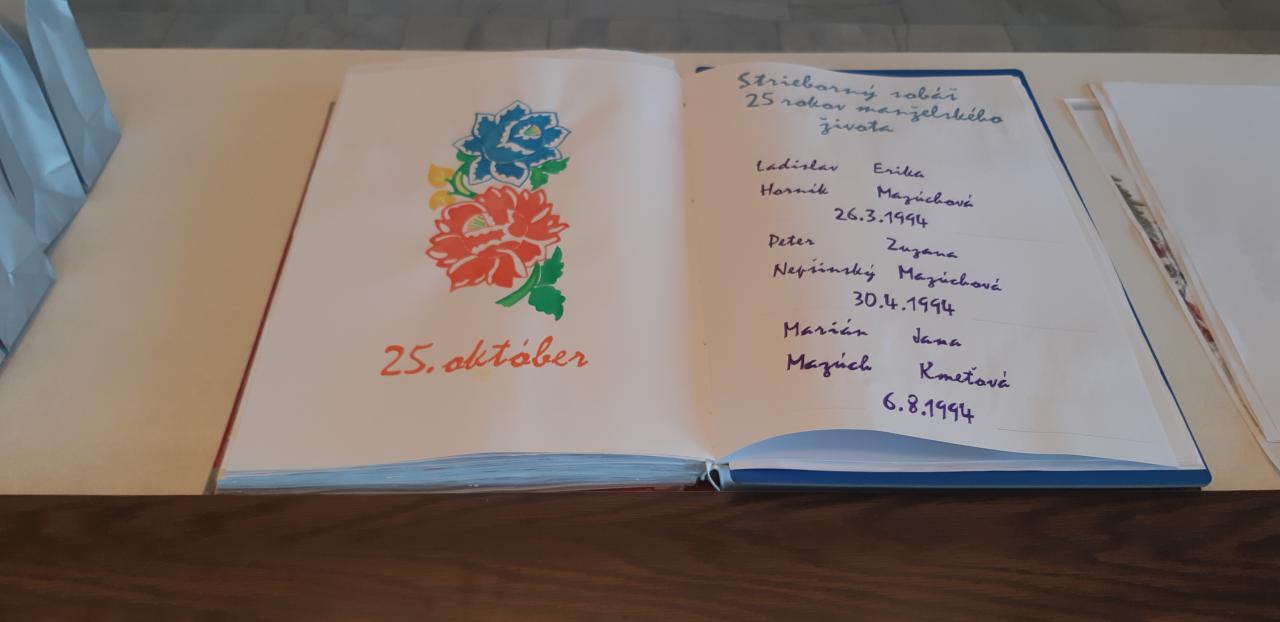 25. október
Strieborný sobáš
25 rokov manželského
života
Ladislav Erika
Horník Mazúchová
26.3.1994
Peter Zuzana
Nepšinský Mazúchová
30.4.1994
Marián Jana
Mazúch Kmeťová
6.8.1994